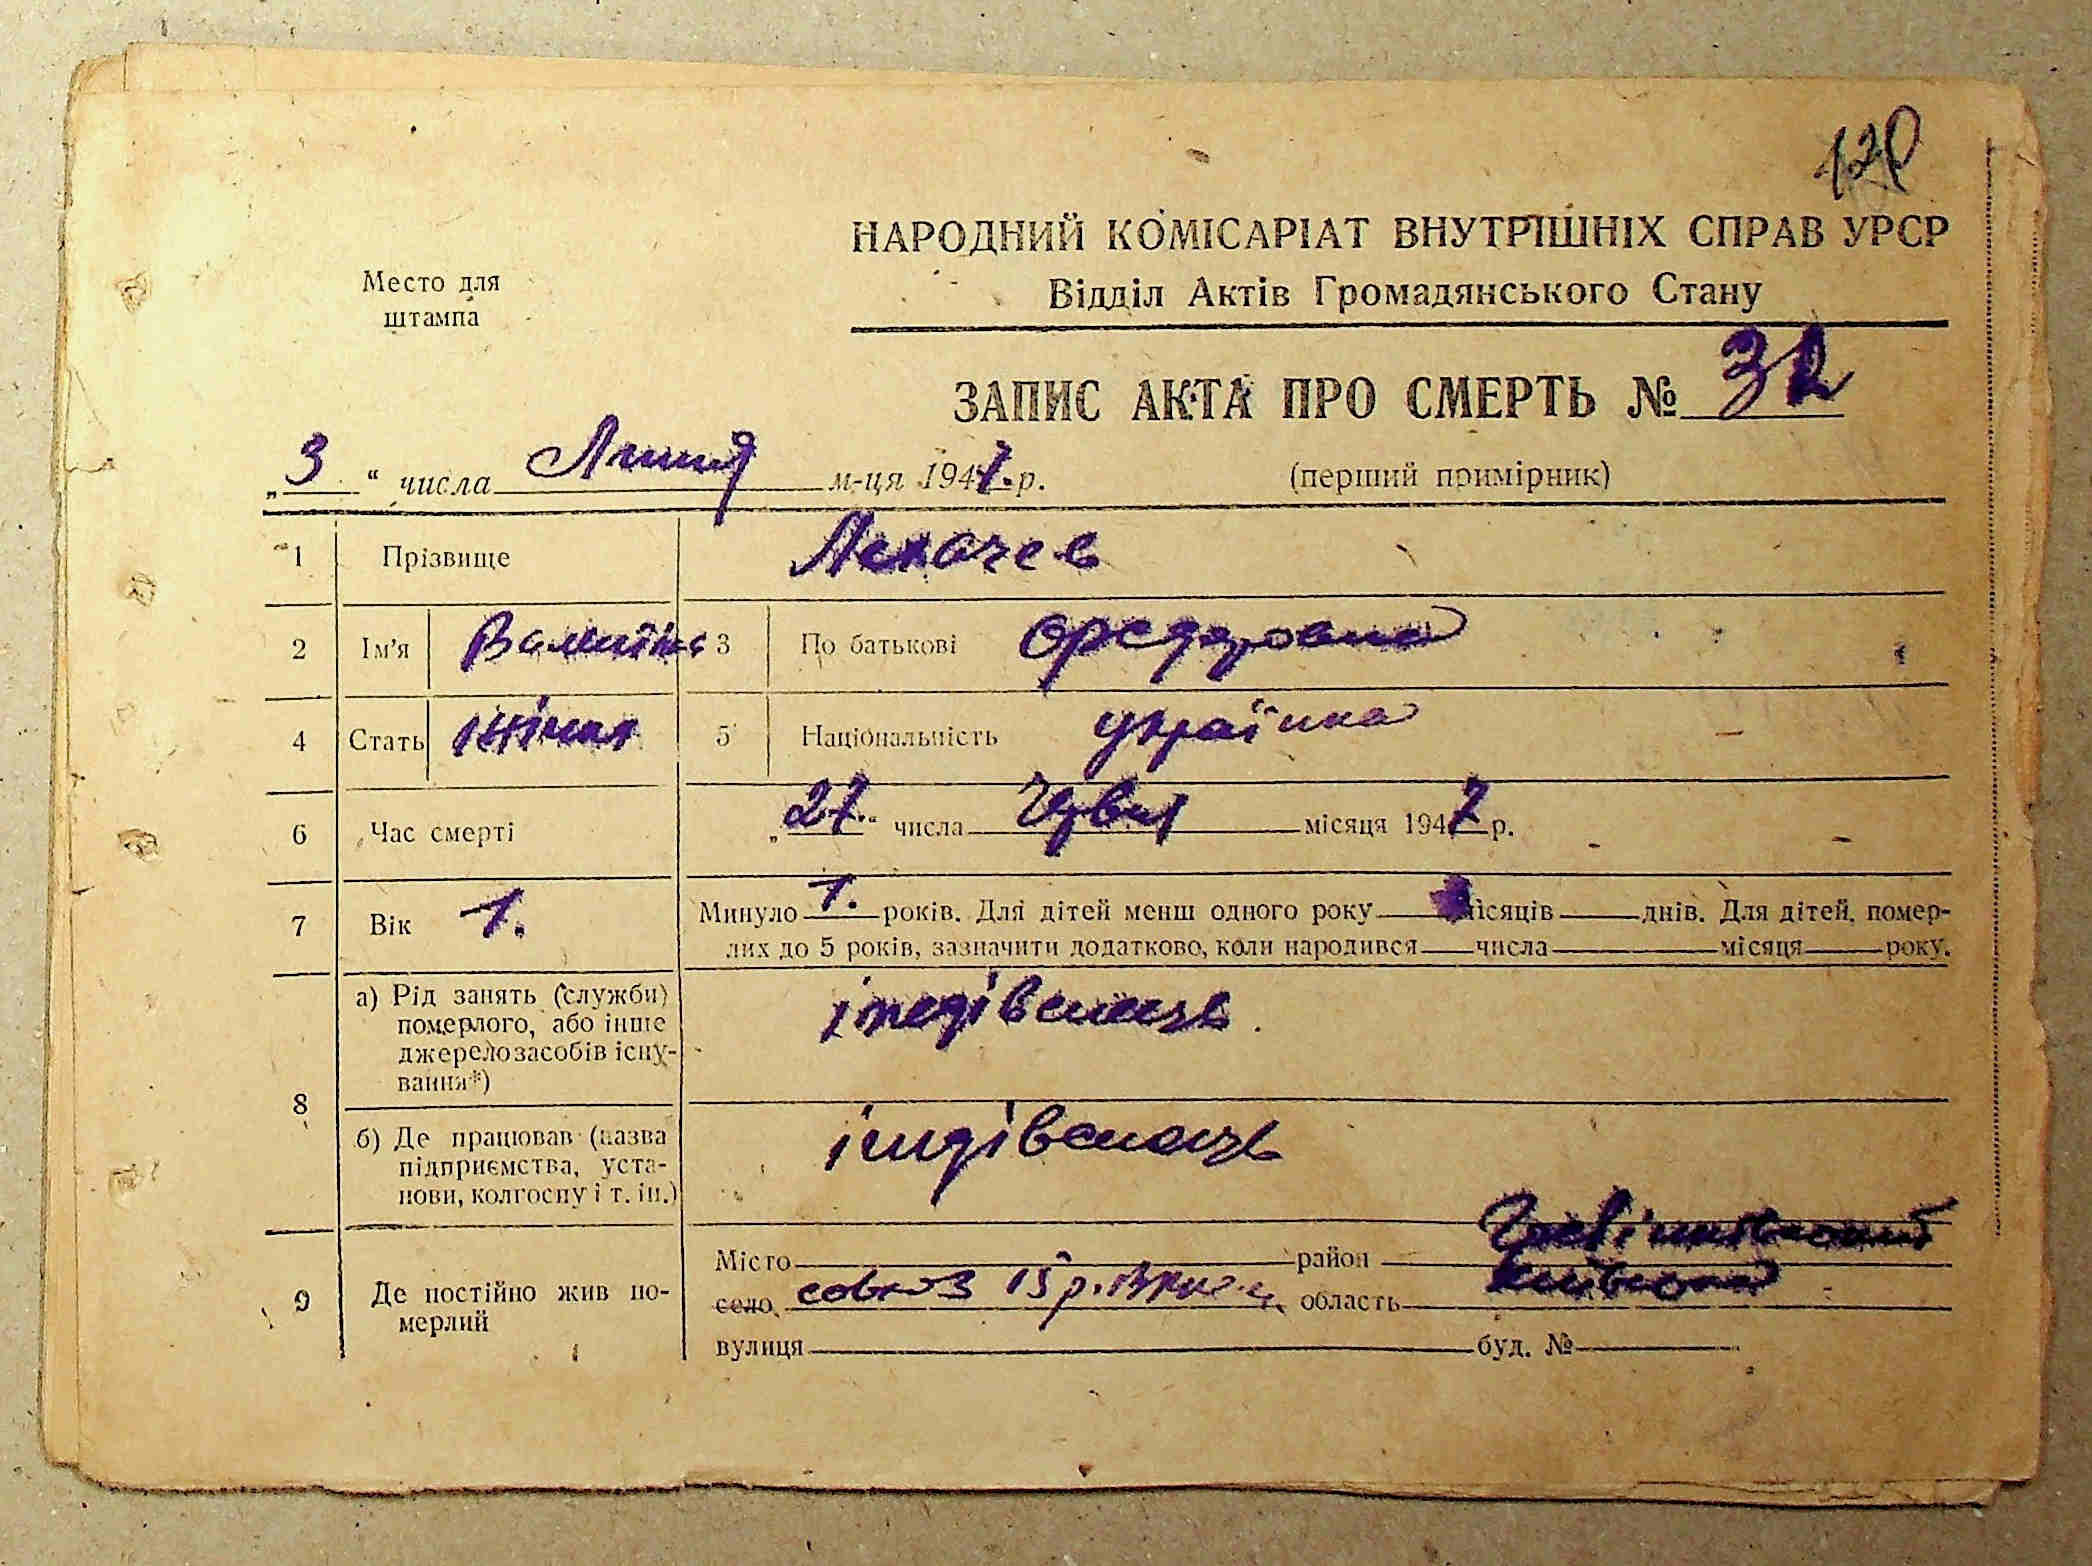 120
НАРОДНИЙ КОМІСАРІАТ ВНУТРІШНІХ СПРАВ УРСР
Место для штампа
Відділ Актів Громадянського Стану
ЗАПИС АКТА ПРО СМЕРТЬ № 32
„3“ числа Липня м-ця 1947 р. (перший примірник)
1 Прізвище
2 Ім'я Валентіна 3 По батькові Федоровна
4 Стать жіноча 5 Національність українка
6 Час смерті „27“ числа Червня місяця 1947 р.
7 Вік 1. Минуло 1. років. Для дітей менш одного року місяців днів. Для дітей, помер-
лих до 5 років, зазначити додатково, коли народився числа місяця року.
8 а) Рід занять (служби) померлого, або інше джерело засобів існу-вання*)
б) Де працював (назва підприємства, уста-нови, колгоспу і т. ін.)
9 Де постійно жив по-мерлий
Місто район
село совхоз 15 р. область Київська
вулиця буд. №